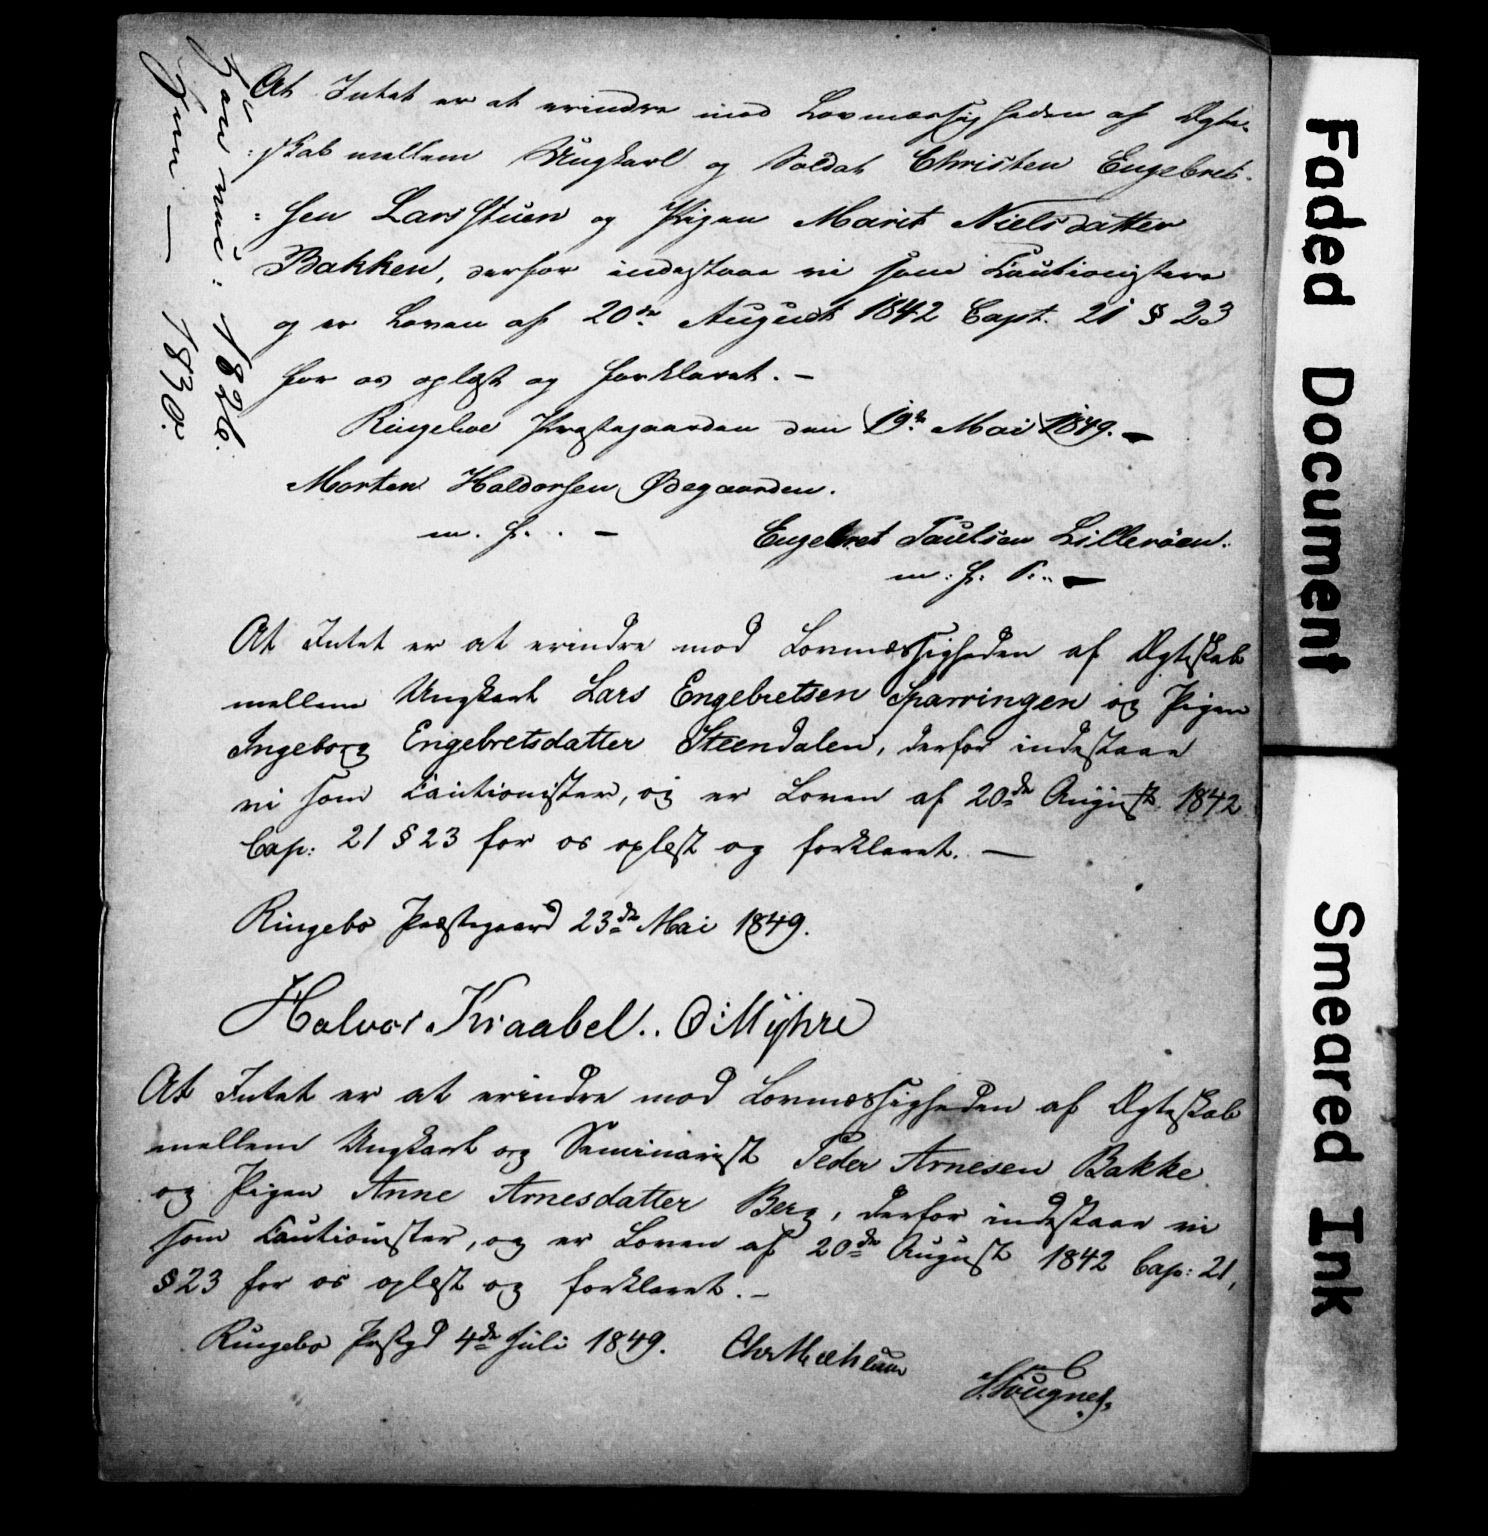 At Intet er at erindre mod Lovmæssigheden af Ægte-
skab mellem Ungkarl og Soldat Christen Engebret-
sen Larsstuen og Pigen Marit Nielsdatter
Bakken, derfor indestaae vi som Cautionister
og er Loven af 20de August 1842 Capt. 21 § 23
for os oplæst og forklaret. –
Ringeboe Præstegaarden den 19de Mai 1849. –
Morten Haldorsen Ødegaarden.
m. P. . –
Engebret Paulsen Lillerøen.
m: P: P: . –
At Intet er at erindre mod Lovmæssigheden af Ægteskab
mellem Ungkarl Lars Engebretsen Sparringen og Pigen
Ingeborg Engebretsdatter Steendalen, derfor indestaae
vi som Cautionister, og er Loven af 20de August 1842
Cap: 21 § 23 for os oplæst og forklaret. —
Ringebo Præstegaard 23de Mai 1849.
Halvor Kraabel. . O: Myhre
At Intet er at erindre mod Lovmæssigheden af Ægteskab
mellem Ungkarl og Seminarist Peder Arnesen Bakke
og Pigen Anne Arnesdatter Berg, derfor indestaae vi
som Cautionister, og er Loven af 20de August 1842 Cap: 21,
§ 23 for os oplæst og forklaret. –
Ringebo Prstgd 4de Juli 1849. Chr Mæhlum
1826.
1830.
Faded Document
Smeared Ink